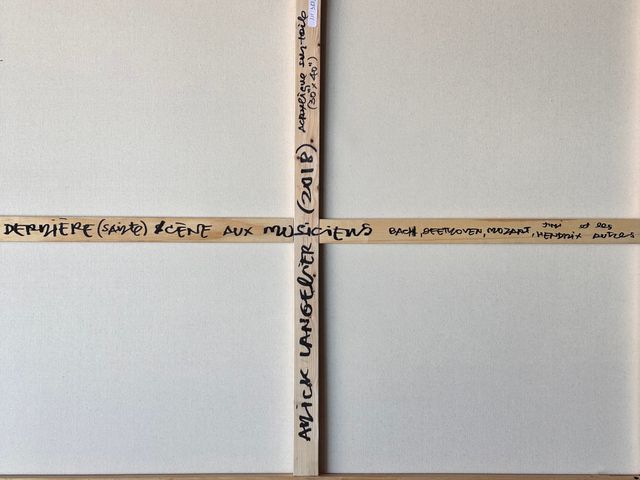 DERNIÈRE (SAINTE) SCÈNE AUX MUSICIENS
Jimi et les
BACH, BEETHOVEN, MOZART, HENDRIX AUTRES
ANICK LANGELIER (2018).
ACRYLIQUE SUR TOILE
(30" X 40")